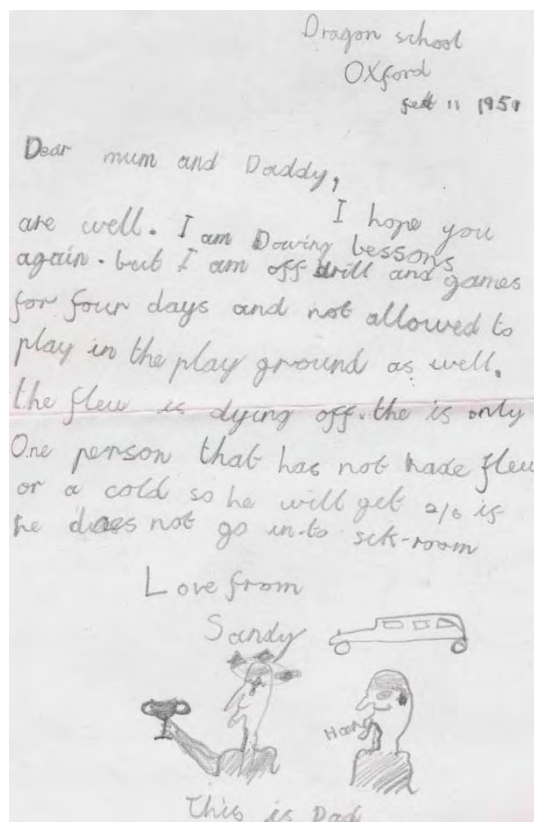 Dragon school
Oxford
Feb 11 1951
Dear mum and Daddy,
I hope you
are well. I am Dowing lessons
again. but I am off drill and games
for four days and not allowed to
play in the play ground as well.
the fleu is dying off. the is only
One person that has not hade fleu
or a cold so he will get 2/6 is
he does not go in-to sck-room
Love from
Sandy
This is Dad